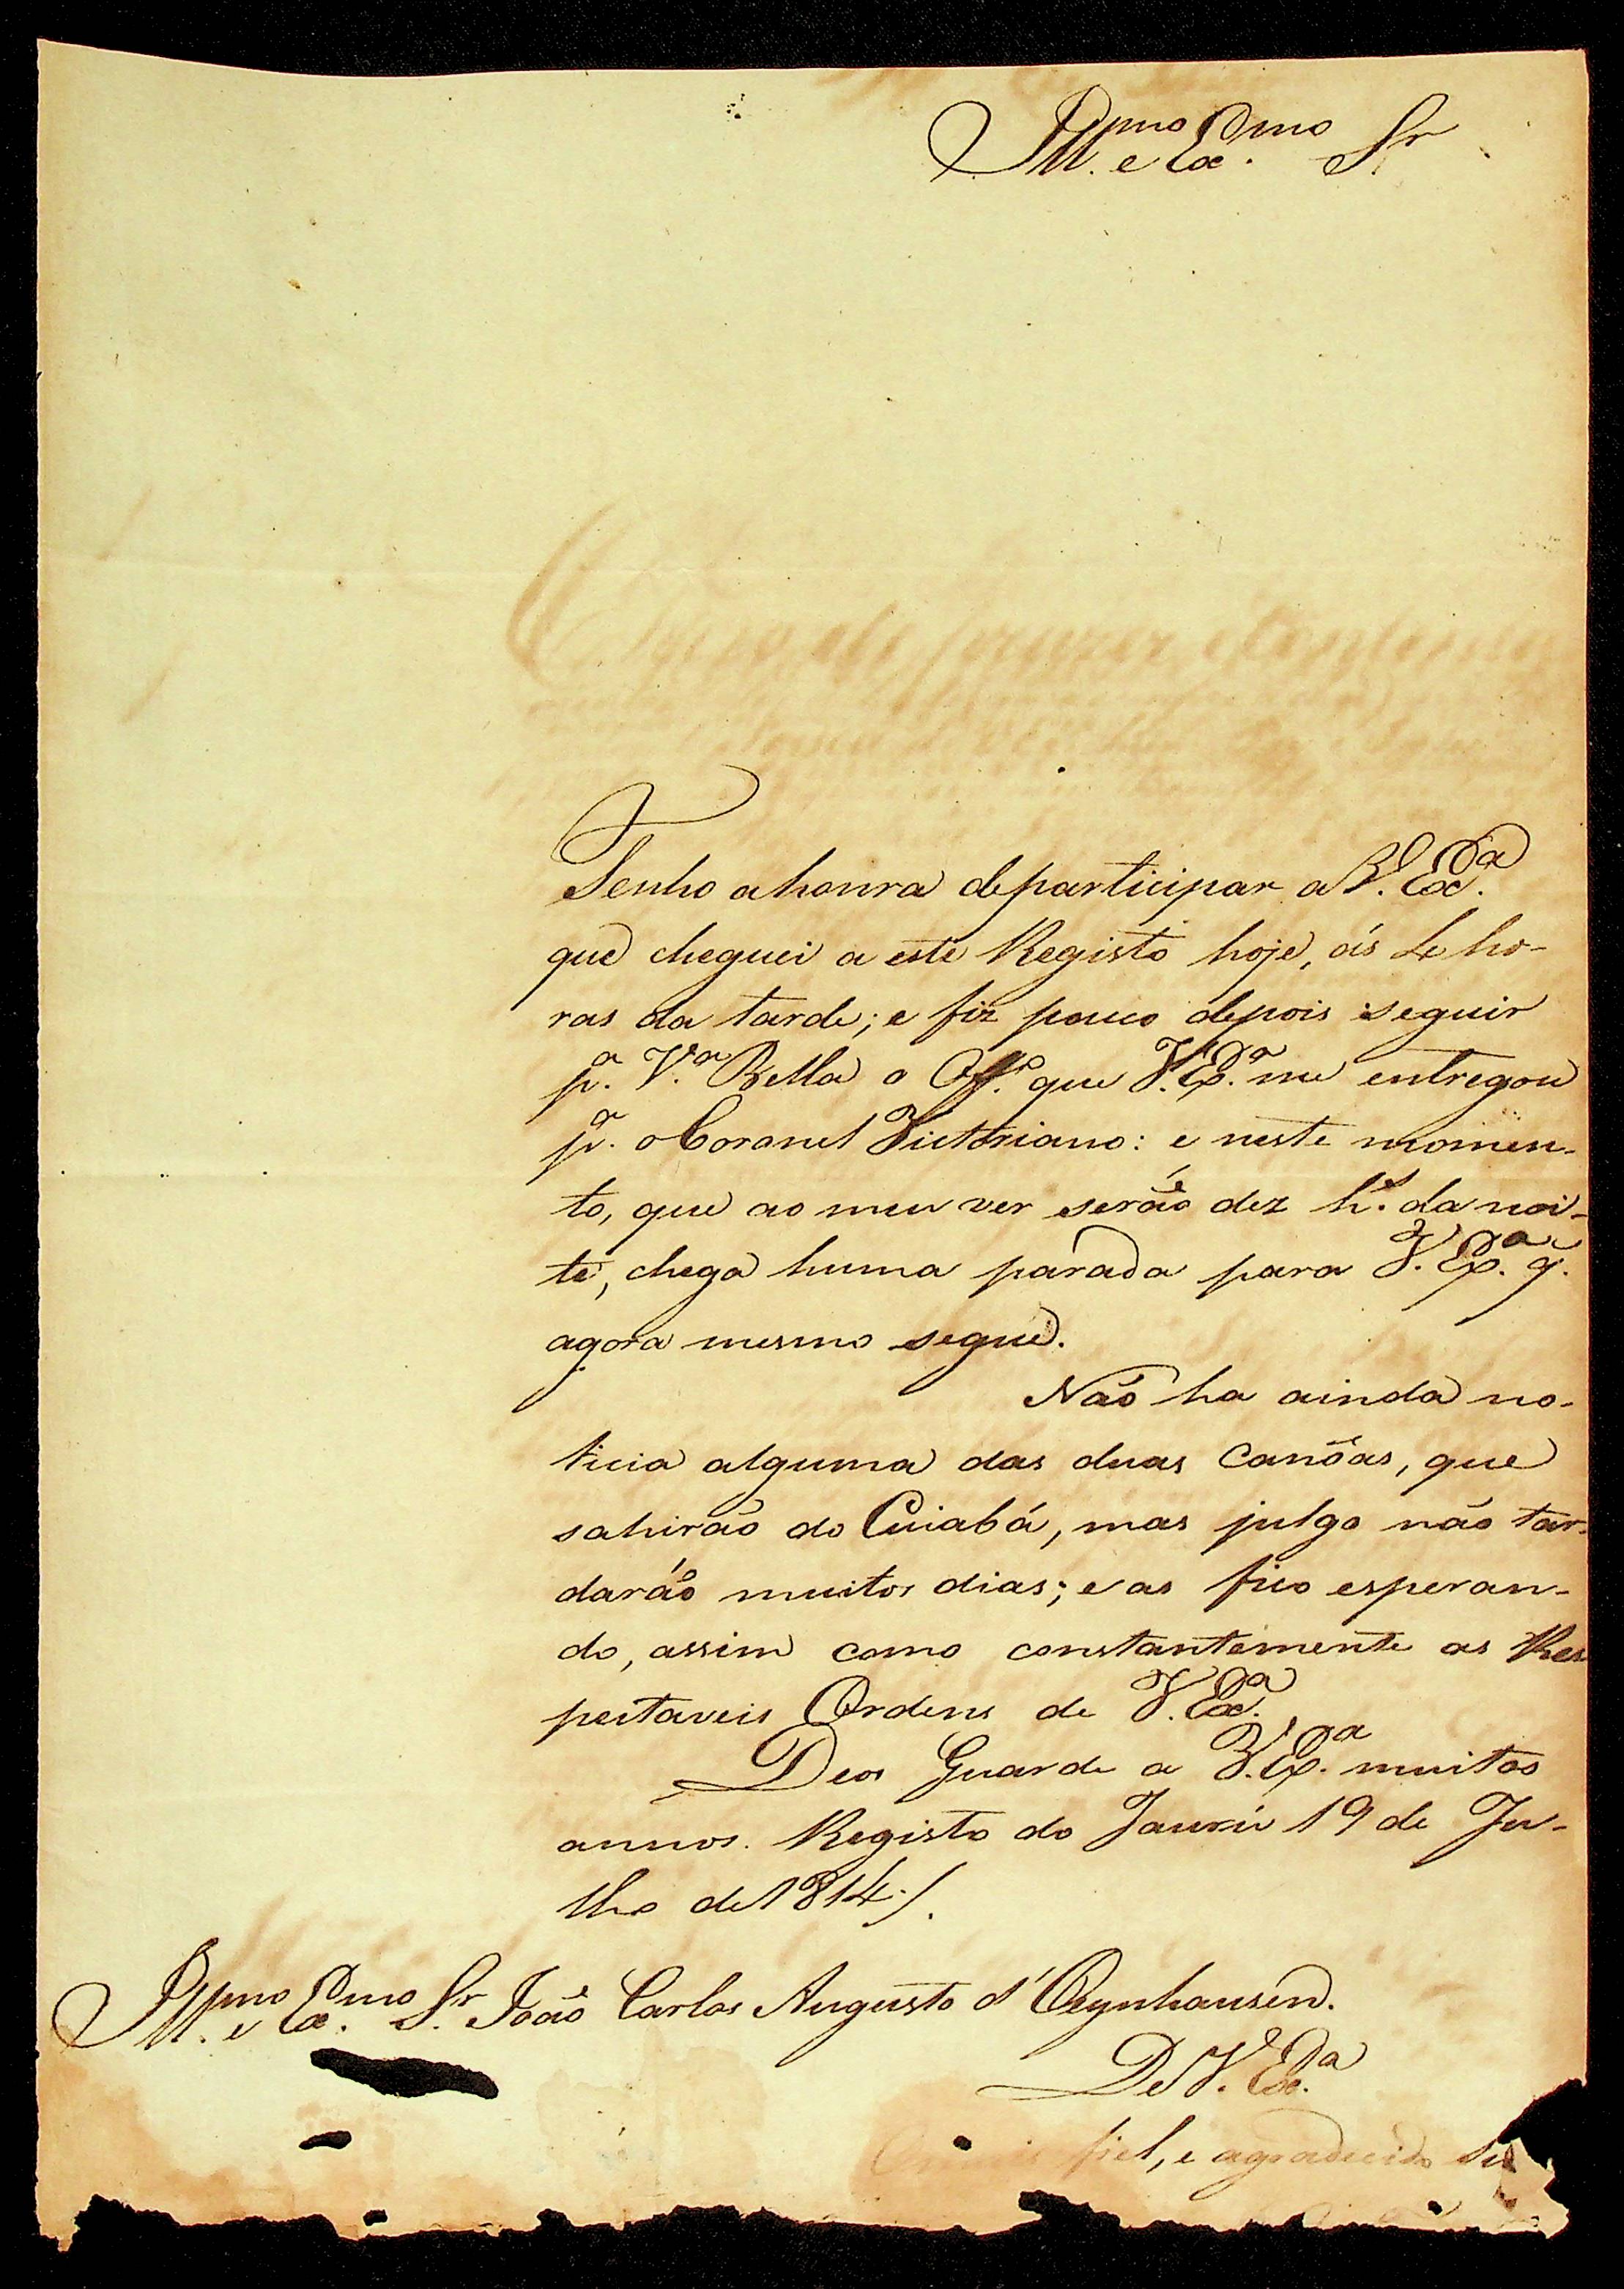 Ill.mo e Ex.mo Sr
Tenho a honra de participar a V. Ex.a
que cheguei a este Registo hoje, ás 4 ho-
ras da tarde; e fiz pouco depois seguir
p.a V.a Bella o Off.o que V. Ex.a me entregou
p.a o Coronel Victoriano: e neste momen-
to, que ao meu ver serão dez h.s da noi-
te, chega huma parada para V. Ex.a q.
agora mesmo segue.
Não ha ainda no-
ticia alguma das duas canôas, que
sahirão do Cuiabá, mas julgo não tar-
daráõ muitos dias; e as fico esperan-
do, assim como constantemente as Res
peitaveis Ordens de V. Ex.a
Deos Guarde a V. Ex.a muitos
annos. Registo do Jaurú 19 de Ju-
lho de 1814./.
Ill.mo e Ex.mo Sr. João Carlos Augusto d'Oeynhausen.
De V. Ex.a
fiel, e agradecido